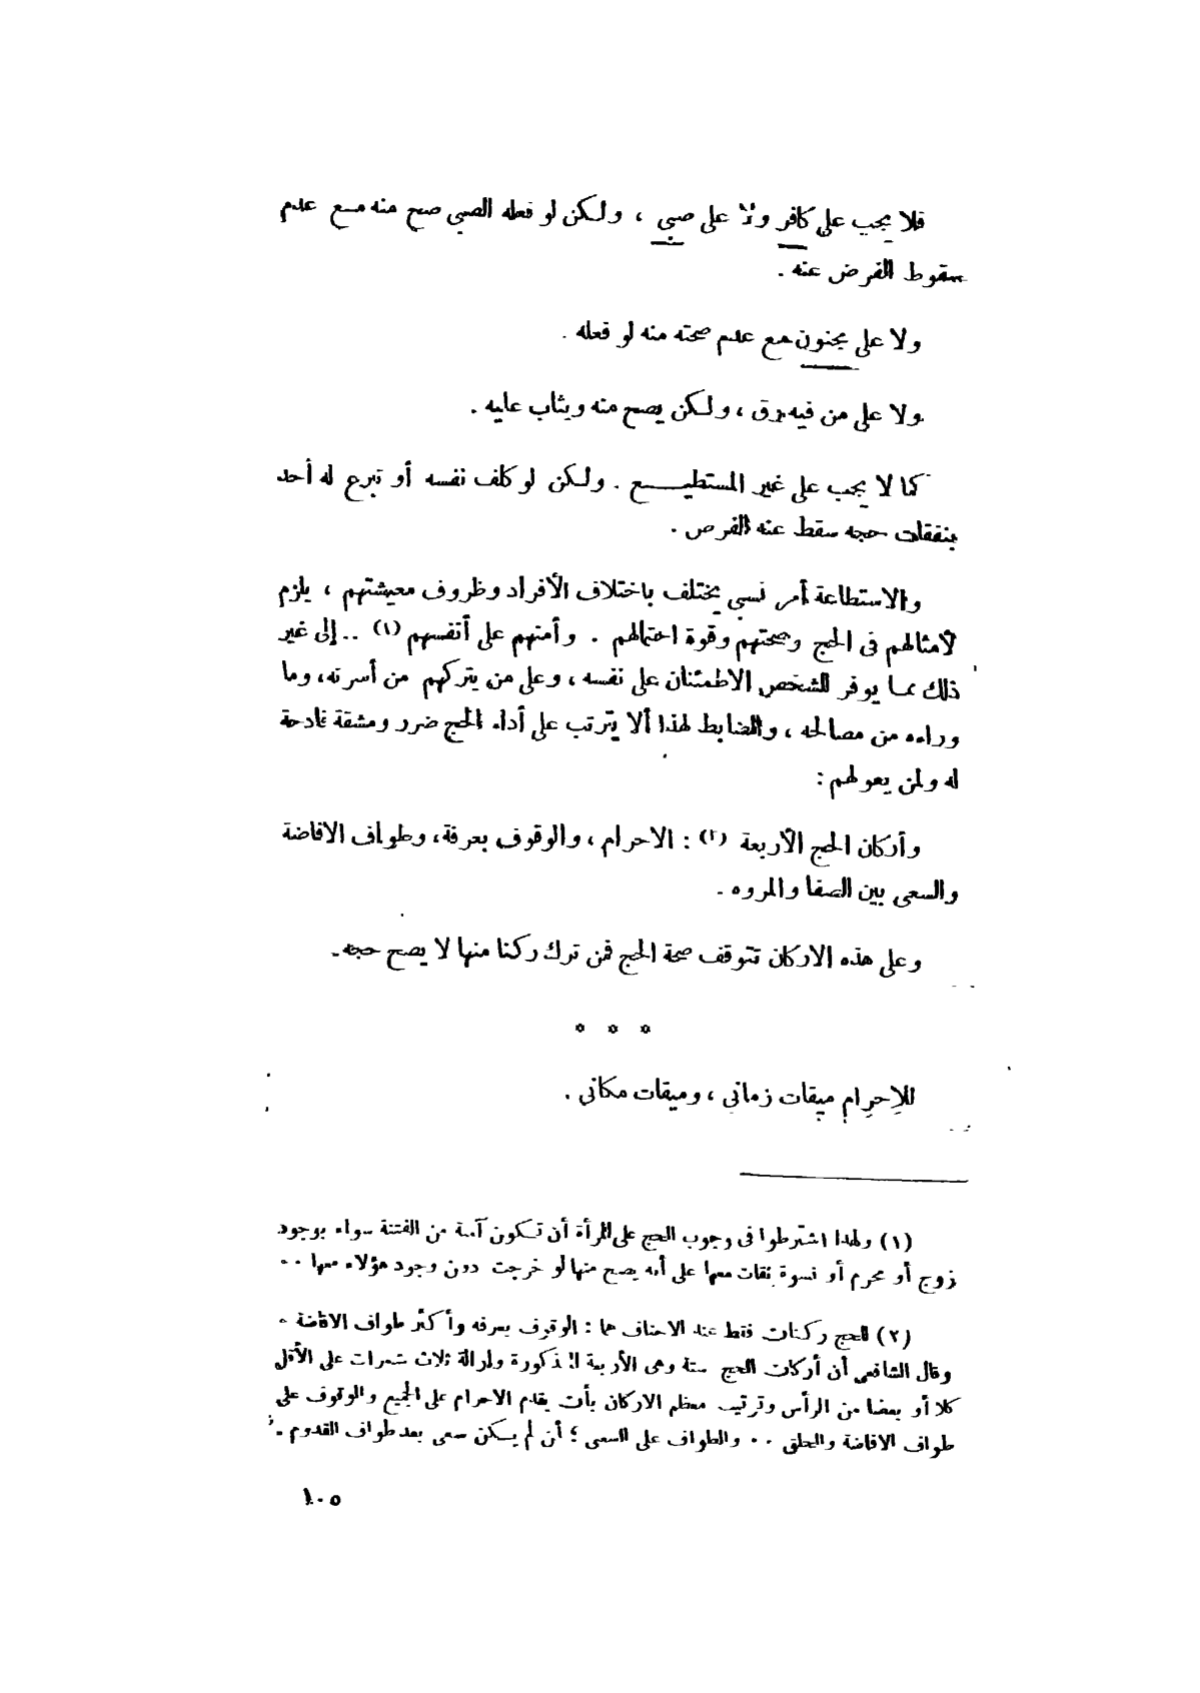 فلا يجب على كافر ولا على صبى ، ولكن لو فعله الصبى صح منه مع عدم
سقوط الفرض عنه .
ولا على مجنون مع عدم صحته منه لو فعله .
ولا على من فيه رق ، ولكن يصح منه ويثاب عليه .
كما لا يجب على غير المستطيع . ولكن لو كلف نفسه أو تبرع له أحد
بنفقات حجه سقط عنه الفرض .
والاستطاعة أمر نسبى يختلف باختلاف الأفراد وظروف معيشتهم ، يلزم
لأمثالهم فى الحج وصحتهم وقوة احتمالهم . وأمنهم على أنفسهم (١) .. إلى غير
ذلك مما يوفر للشخص الاطمئنان على نفسه ، وعلى من يتركهم من أسرته، وما
وراءه من مصالحه ، والضابط لهذا ألا يترتب على أداء الحج ضرر ومشقة فادحة
له ولمن يعولهم :
وأركان الحج الأربعة (٢) : الاحرام ، والوقوف بعرفة، وطواف الافاضة
والسعى بين الصفا والمروه .
وعلى هذه الاركان تتوقف صحة الحج فمن ترك ركنا منها لا يصح حجه.
* * *
للإحرام ميقات زمانى ، وميقات مكانى .
(١) ولهذا اشترطوا فى وجوب الحج على المرأة أن تكون آمنة من الفتنة سواء بوجود
زوج أو محرم أو نسوة ثقات معها على أنه يصح منها لو خرجت دون وجود هؤلاء معها ..
(٢) للحج ركنات فقط عند الاحناف هما : الوقوف بعرفه وأكثر طواف الافاضة .
وقال الشافعى أن أركات الحج ستة وهى الأربعة المذكورة وإزالة ثلاث شعرات على الأقل
كلا أو بعضا من الرأس وترتيب معظم الاركان بأت يقدم الاحرام على الجميع والوقوف على
طواف الافاضة والحلق .. والطواف على السعى ؛ أن لم يسكن سعى بعد طواف القدوم .
١٠٥